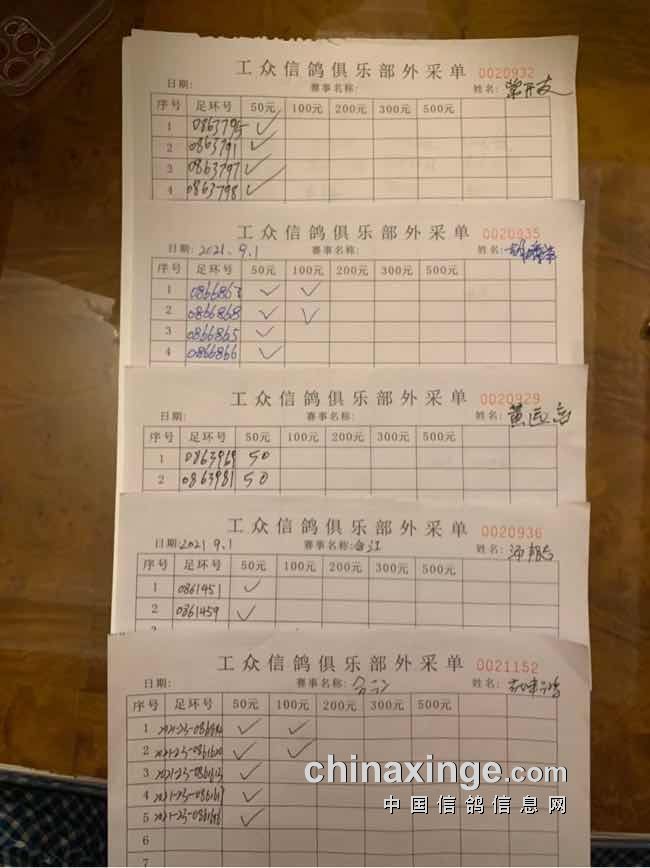 工众信鸽俱乐部外采单 0020932
日期: 赛事名称: 姓名:
序号 足环号 50元 100元 200元 300元 500元
1 0863795 ✓
2 0863791 ✓
3 0863797 ✓
4 0863798 ✓
工众信鸽俱乐部外采单 0020935
日期: 2021.9.1 赛事名称: 姓名:
序号 足环号 50元 100元 200元 300元 500元
1 ✓ ✓
2 0866868 ✓ ✓
3 0866865 ✓
4 0866866 ✓
工众信鸽俱乐部外采单 0020929
日期: 赛事名称: 姓名:
序号 足环号 50元 100元 200元 300元 500元
1 0863969 50
2 0863981 50
工众信鸽俱乐部外采单 0020936
日期: 2021 9.1 赛事名称: 姓名:
序号 足环号 50元 100元 200元 300元 500元
1 0861451 ✓
2 0861459 ✓
工众信鸽俱乐部外采单 0021152
日期: 赛事名称: 姓名:
序号 足环号 50元 100元 200元 300元 500元
1 ✓ ✓
2 ✓ ✓
3 ✓
4 ✓
5 ✓
6
7
chinaxinge.com
中国信鸽信息网